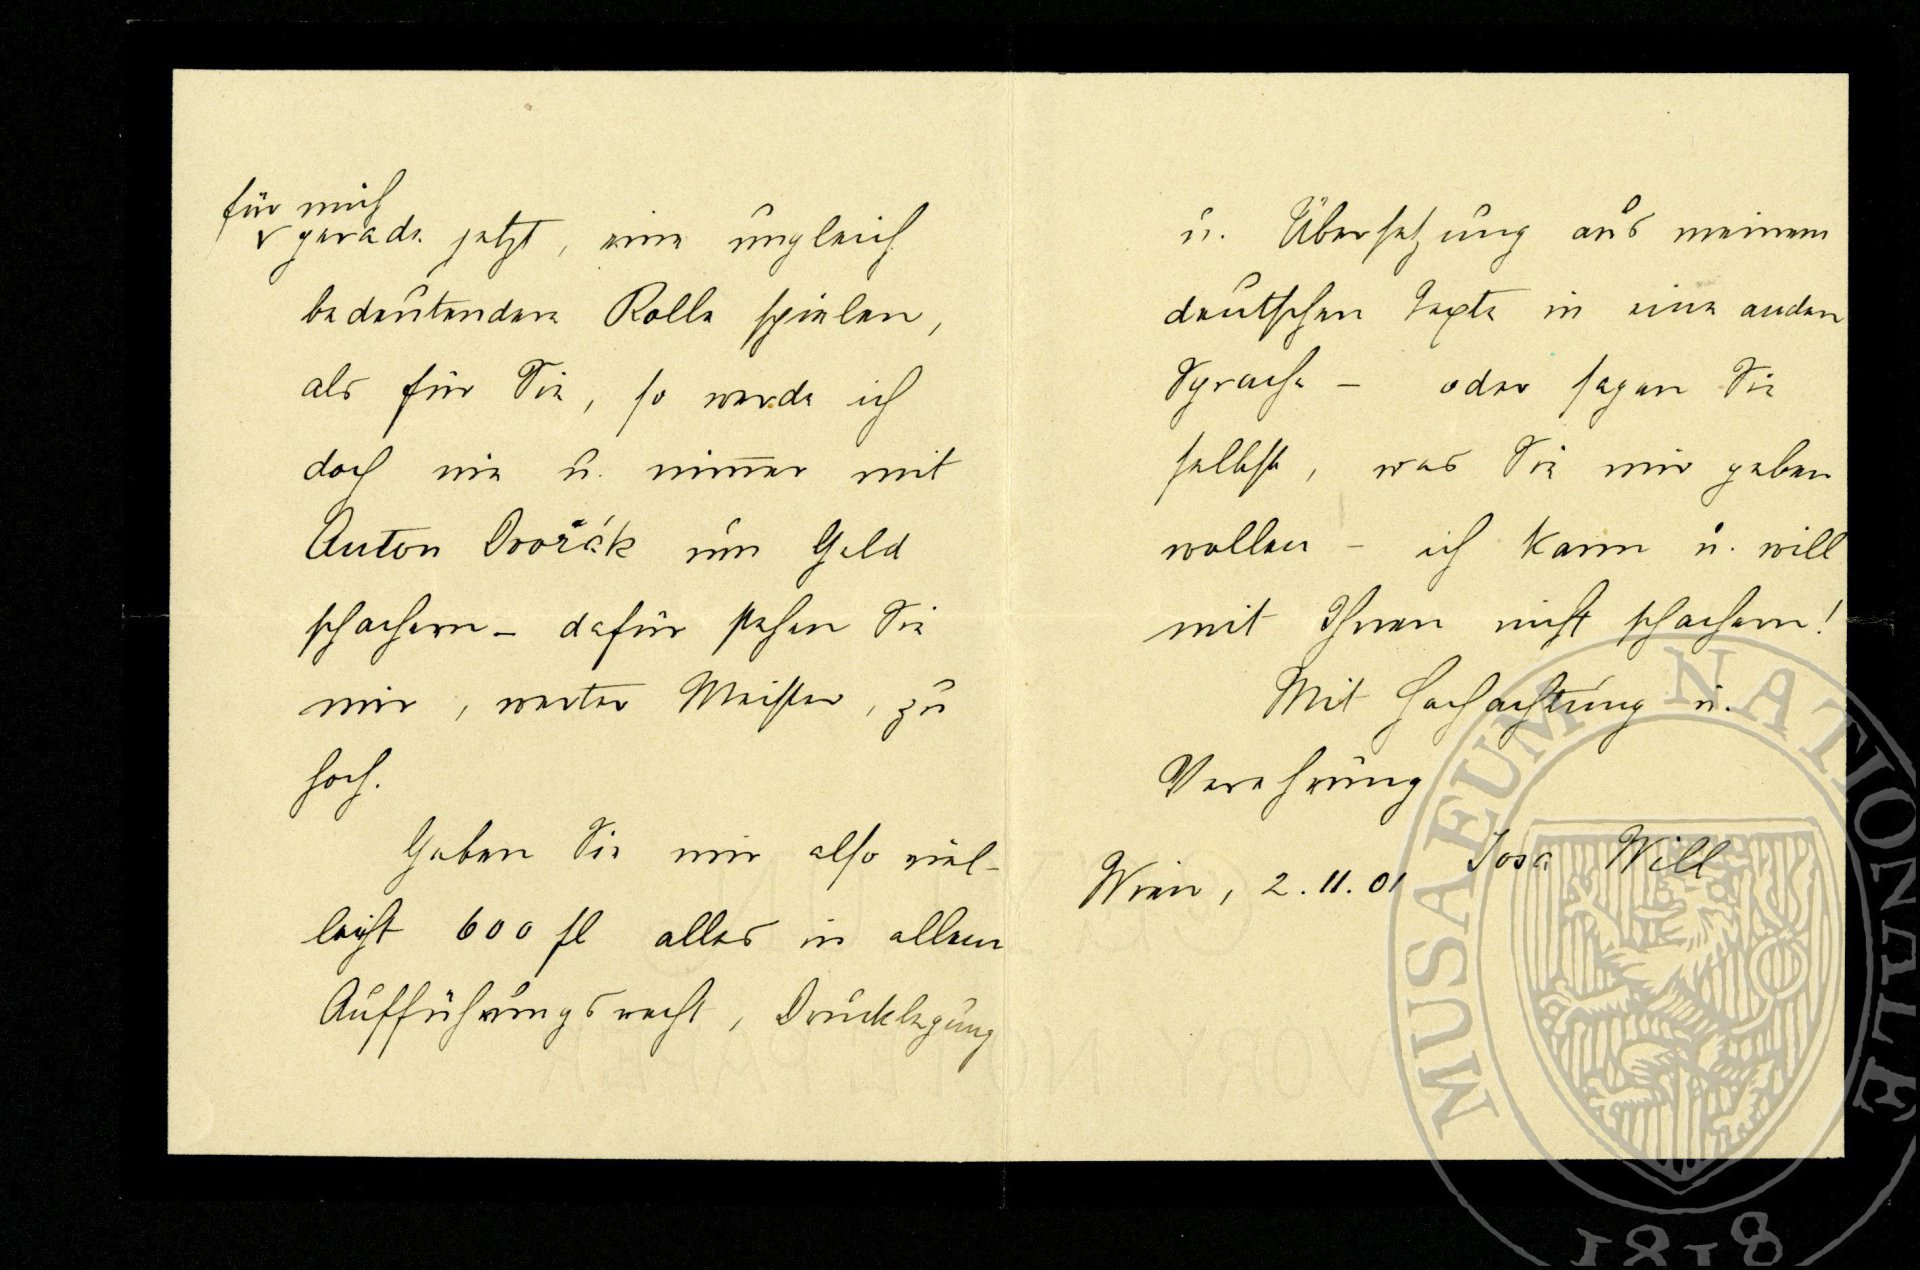 für mich
gerade jetzt, eine ungleich
bedeutendere Rolle spielen,
als für Sie, so werde ich
doch nie u. nim̅er mit
Anton Dvořák um Geld
schachern – dafür stehen Sie
mir, werter Meister, zu
hoch.
Geben Sie mir also viel-
leicht 600 fl alles in allem
Aufführungsrecht, Drucklegung
u. Übersetzung aus meinem
deutschen Texte in eine andere
Sprache – oder sagen Sie
selbst, was Sie mir geben
wollen – ich kann u. will
mit Ihnen nicht schachern!
Mit Hochachtung u.
Verehrung
Josa Will
Wien, 2.11.01
MUSAEUM NATIONALE
1818